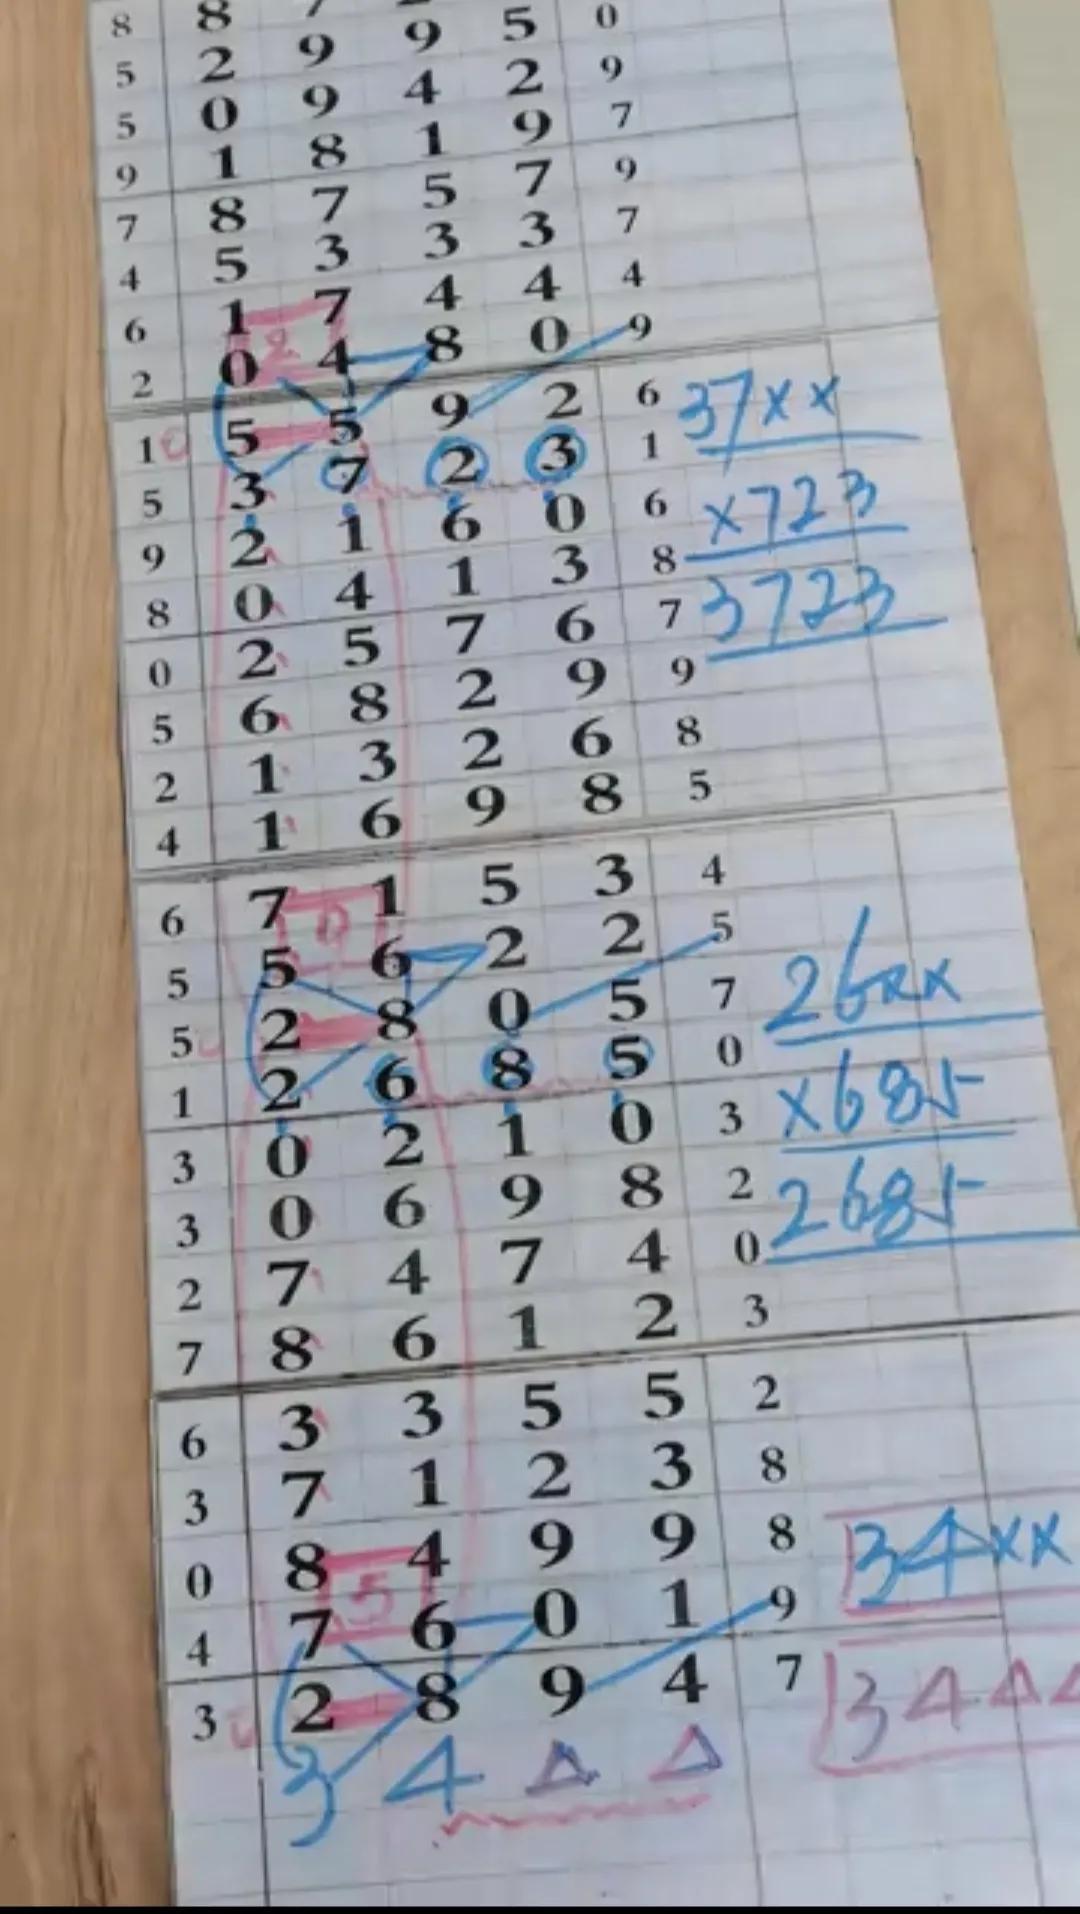 8 8 7 5 0
5 2 9 9 2 9
5 0 9 4 9 7
9 1 8 1 7 9
7 8 7 5 3 7
4 5 3 3 4 4
6 1 7 4 0 9
2 0 4 8
2
1 0 5 5 9 2 6 37xx
5 3 7 2 3 1
9 2 1 6 0 6 x723
8 0 4 1 3 8
0 2 5 7 6 7 3723
5 6 8 2 9 9
2 1 3 2 6 8
4 1 6 9 8 5
6 7 1 5 3 4
0
5 5 6 2 2 5
5 0 2 8 0 5 7 26xx
1 2 6 8 5 0
3 0 2 1 0 3 x685
3 0 6 9 8 2 2685
2 7 4 7 4 0
7 8 6 1 2 3
6 3 3 5 5 2
3 7 1 2 3 8
0 8 4 9 9 8 34xx
5
4 7 6 0 1 9
3 0 2 8 9 4 7 34ΔΔ
3 4 Δ Δ